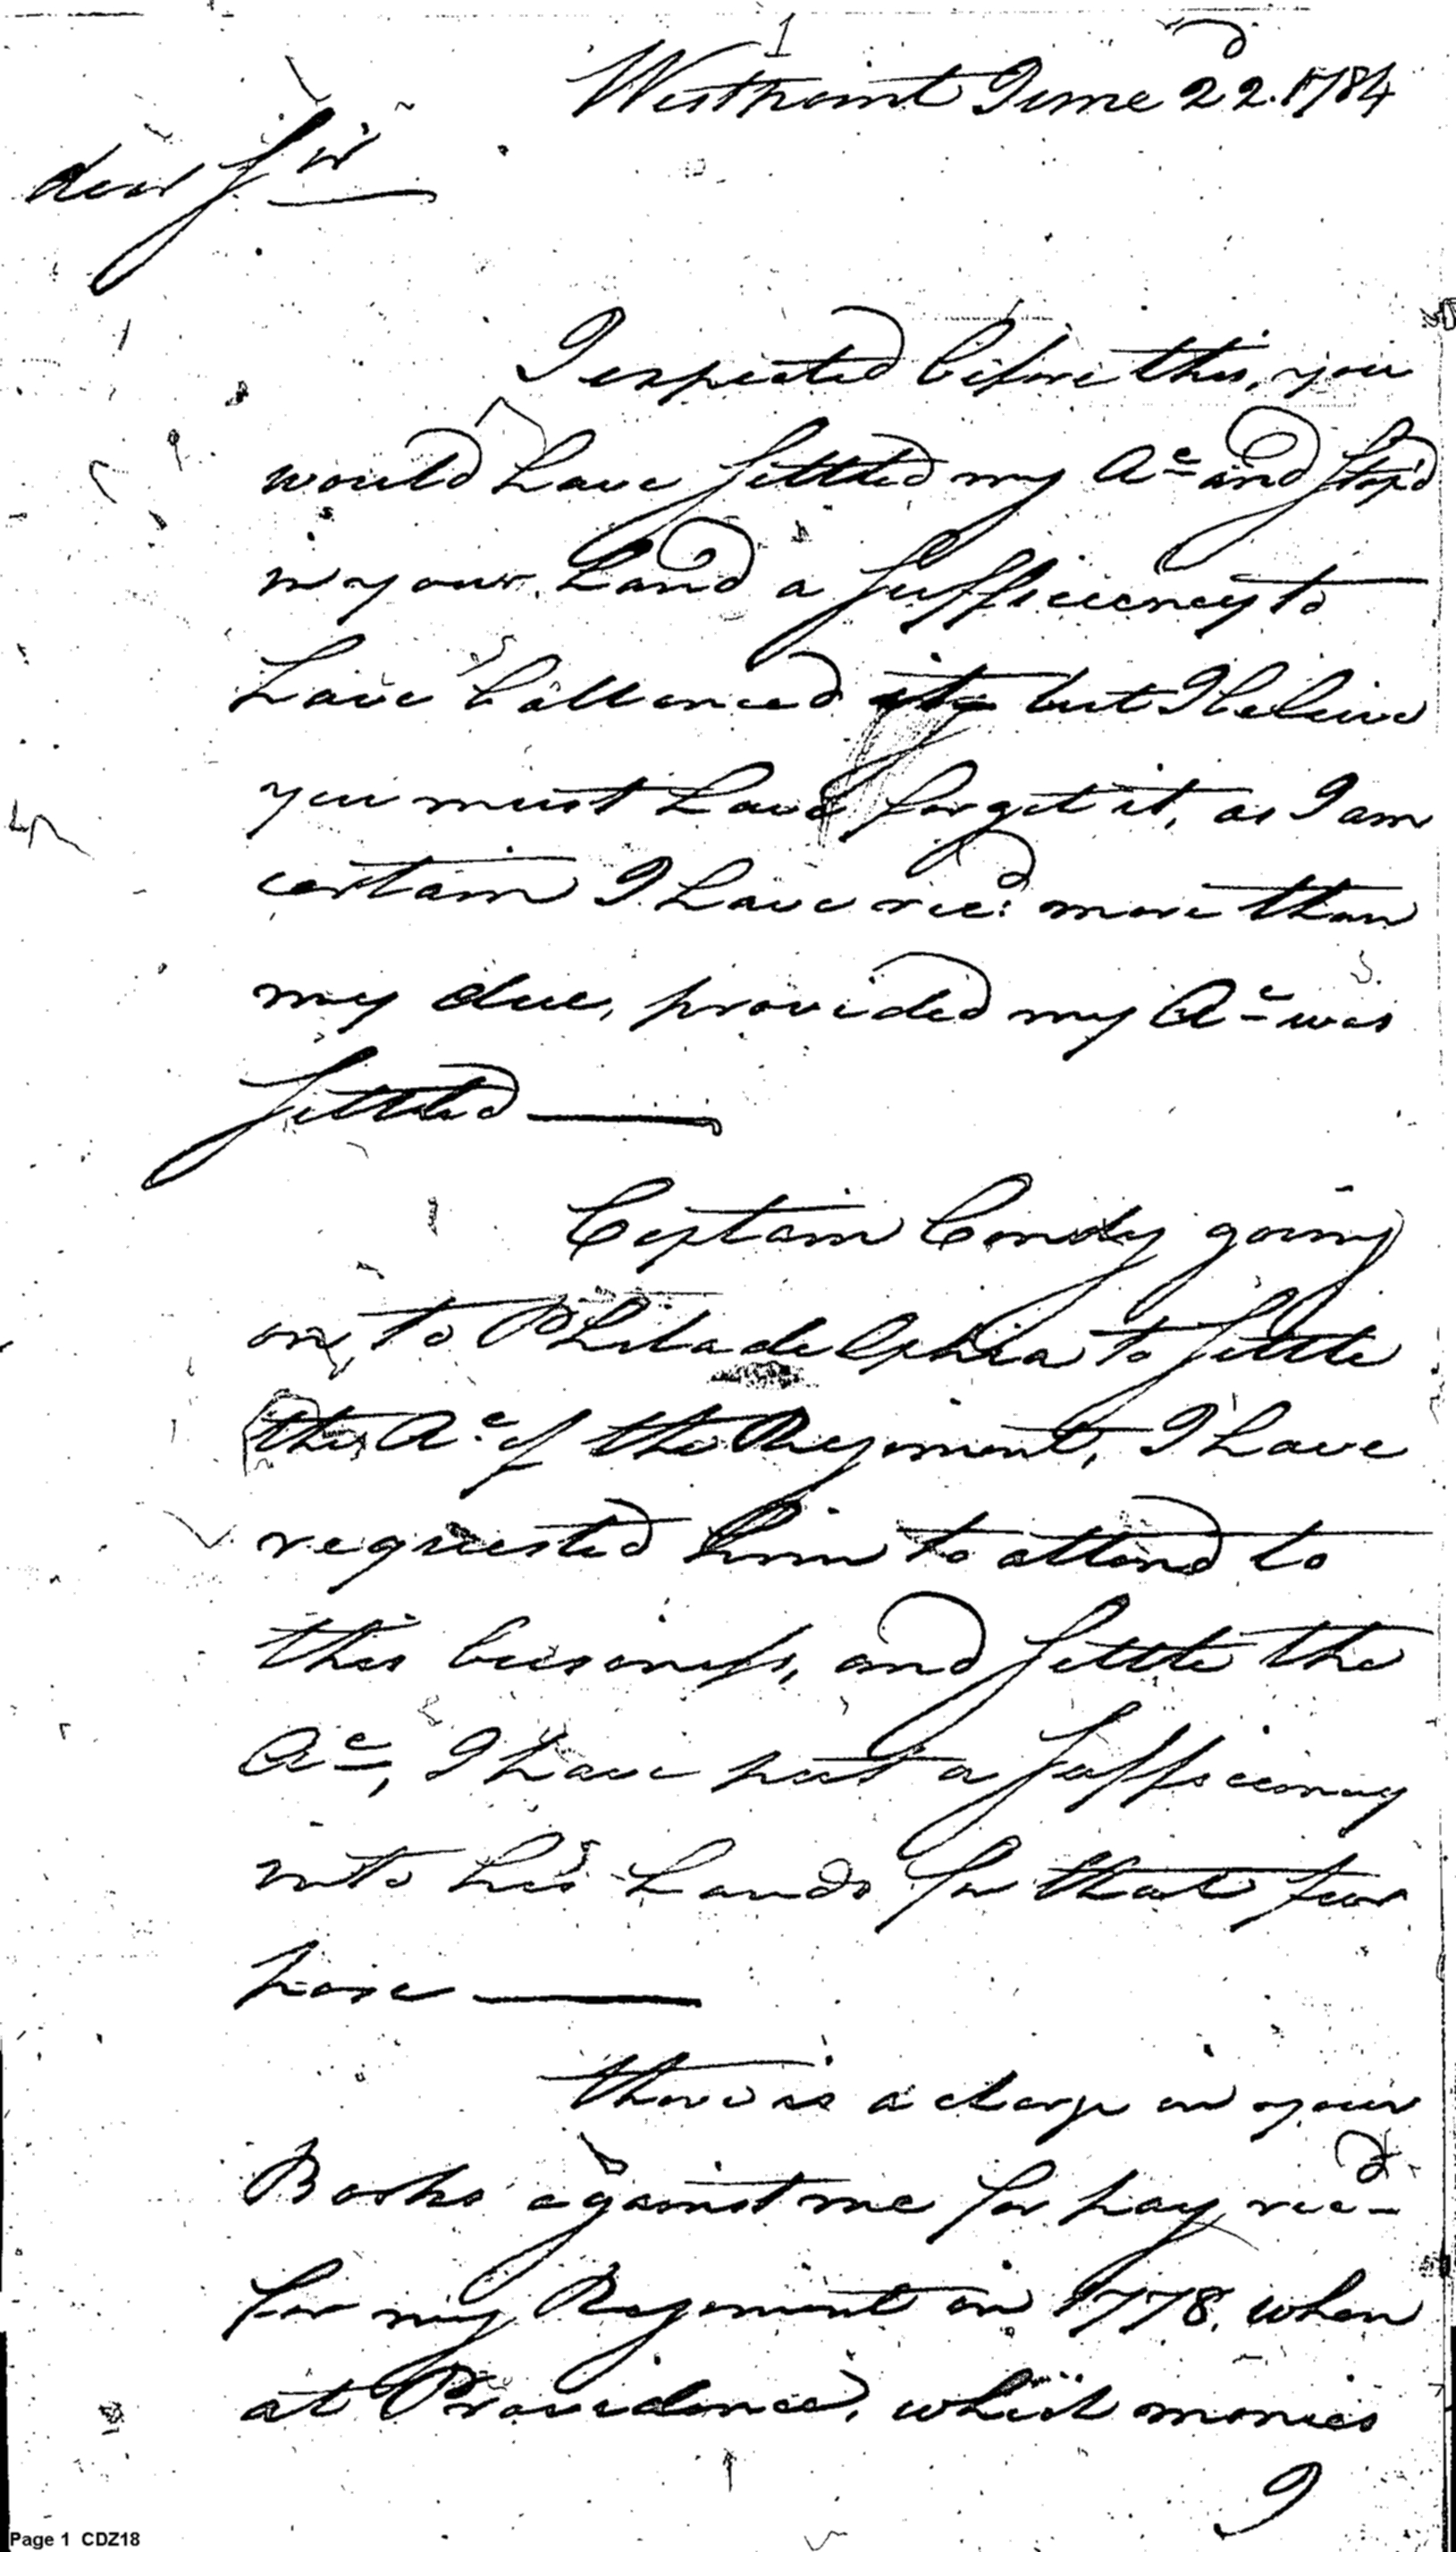 1
Westpoint June 22d. 1784
dear Sir
I expected before this, you
would have settled my Ac and stop'd
in your hand a sufficiency to
have ballenced it, but I beleive
you must have forget it, as I am
certain I have recd: more than
my due, provided my Ac was
settled
Captain Condy going
on to Philadelphia to settle
the Ac. of the Regiment, I have
requested him to attend to
this business, and settle the
Ac, I have put a sufficiency
into his hands for that pur
pose
there is a charge in your
Books against me for pay recd
for my Regiment in 1778, when
at Providence, which monies
I
Page 1 CDZ18